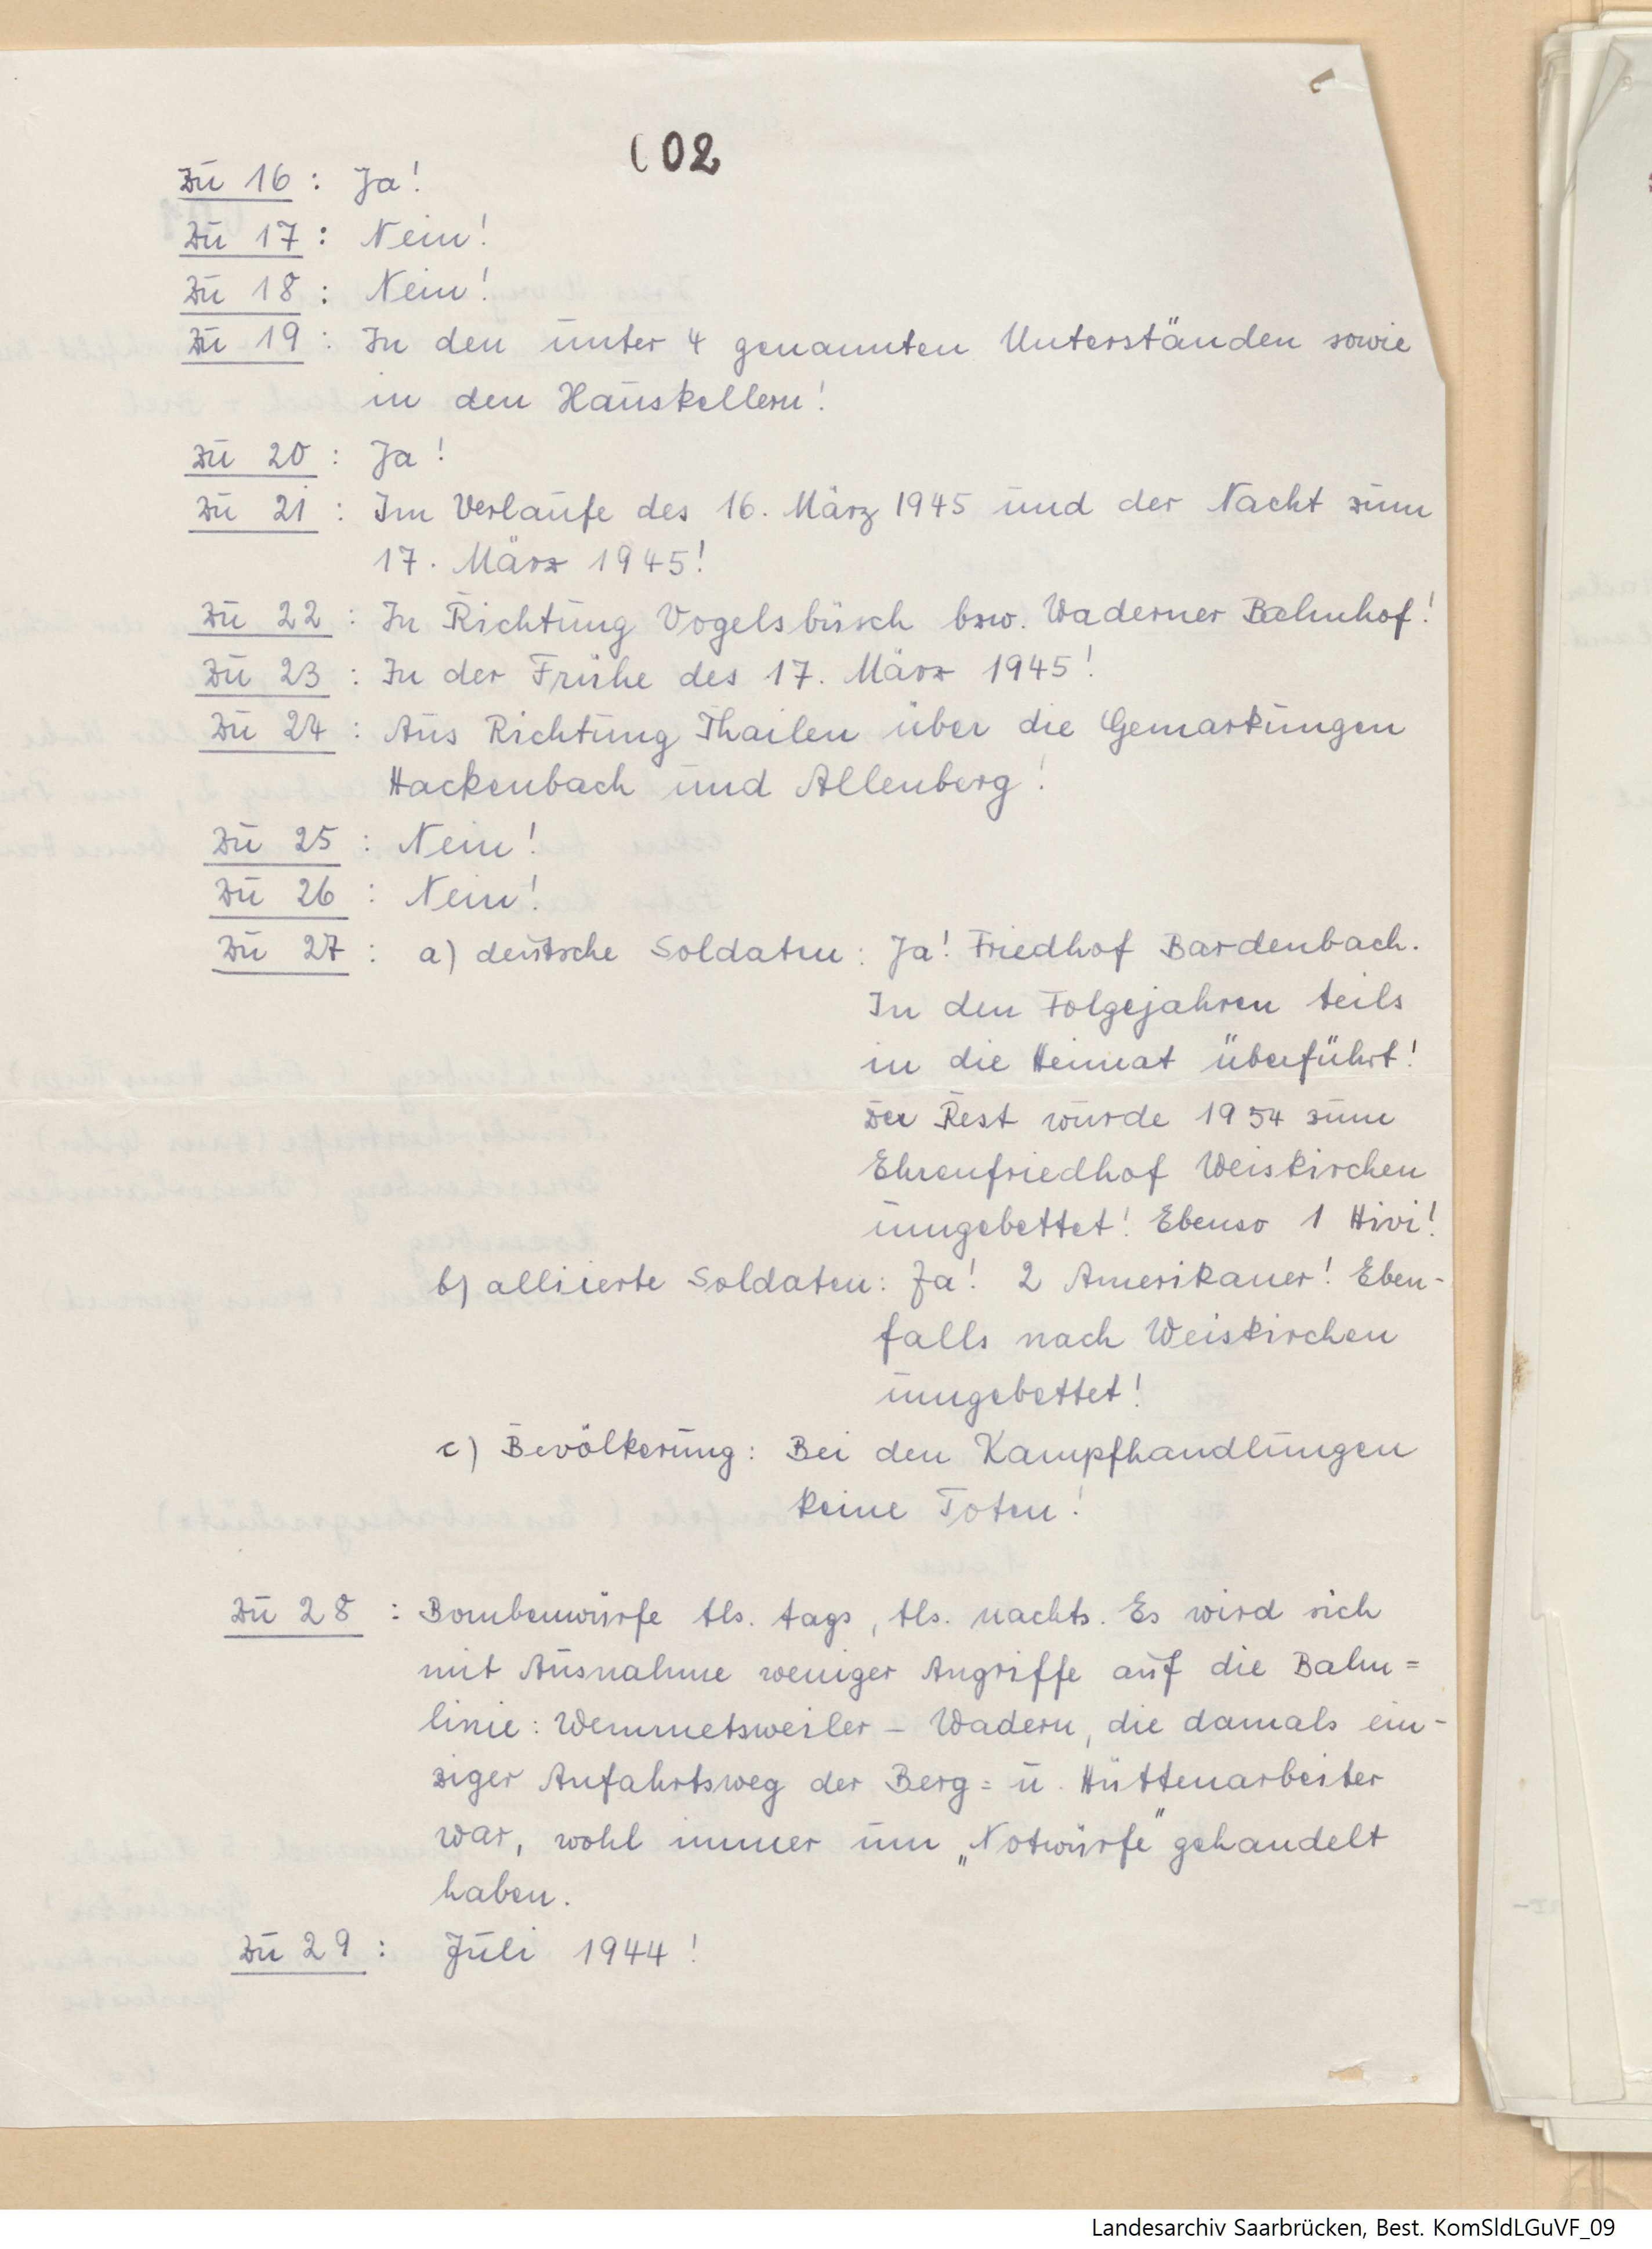 002
Zu 16: Ja!
Zu 17: Nein!
Zu 18: Nein!
Zu 19: In den unter 4 genannten Unterständen sowie
in den Hauskellern!
Zu 20: Ja!
Zu 21: Im Verlaufe des 16. März 1945 und der Nacht zum
17. März 1945!
Zu 22: In Richtung Vogelsbüsch bzw. Waderner Bahnhof!
Zu 23: In der Frühe des 17. März 1945!
Zu 24: Aus Richtung Thailen über die Gemarkungen
Hackenbach und Allenberg!
Zu 25: Nein!
Zu 26: Nein!
Zu 27: a) deutsche Soldaten: Ja! Friedhof Bardenbach.
In den Folgejahren teils
in die Heimat überführt!
Der Rest wurde 1954 zum
Ehrenfriedhof Weiskirchen
umgebettet! Ebenso 1 Hivi!
b) alliierte Soldaten: Ja! 2 Amerikaner! Eben-
falls nach Weiskirchen
umgebettet!
c) Bevölkerung: Bei den Kampfhandlungen
keine Toten!
Zu 28: Bombenwürfe tls. tags, tls. nachts. Es wird sich
mit Ausnahme weniger Angriffe auf die Bahn=
linie: Wemmetsweiler – Wadern, die damals ein-
ziger Anfahrtsweg der Berg= u. Hüttenarbeiter
war, wohl immer um „Notwürfe" gehandelt
haben.
Zu 29: Juli 1944!
Landesarchiv Saarbrücken, Best. KomSldLGuVF_09